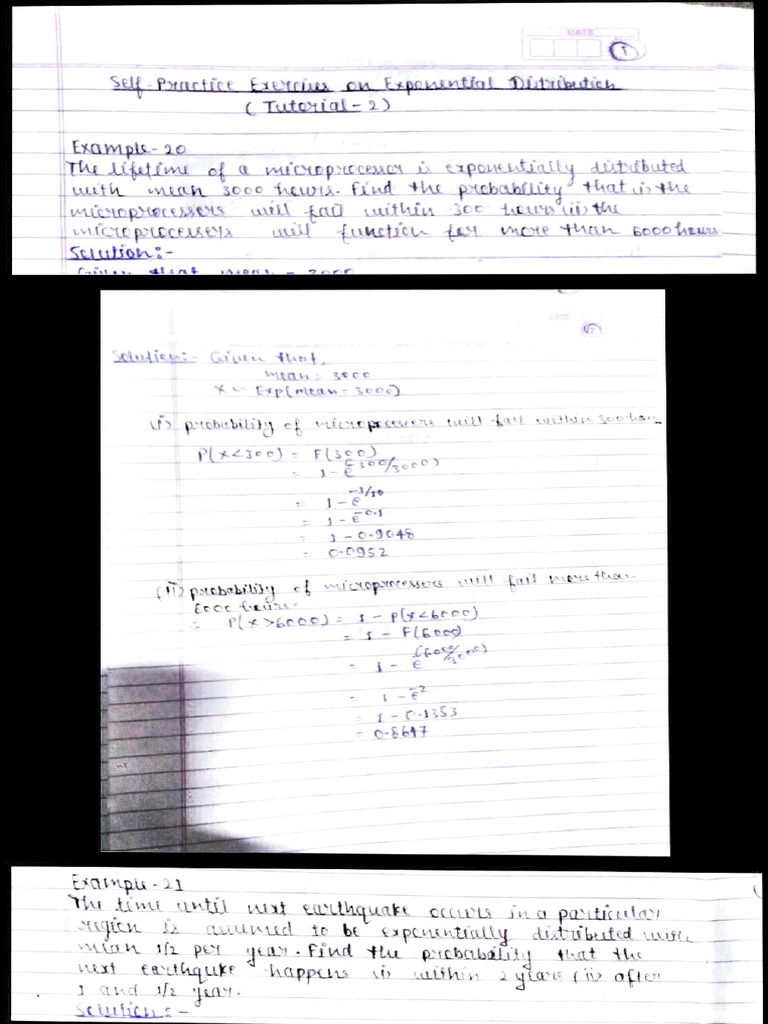 DATE
1
Self-Practice Exercises on Exponential Distribution
(Tutorial-2)
Example-20
The lifetime of a microprocessor is exponentially distributed
with mean 3000 hours. Find the probability that (i) the
microprocessers will fail within 300 hours (ii) the
microprocessers will function for more than 6000 hours
Solution:-
Given that mean = 3000
Solution:- Given that,
mean = 3000
x ~ Exp(mean = 3000)
(i) probability of microprocessers will fail within 300 hou
P(x<300) = F(300)
= 1 - e^(-300/3000)
= 1 - e^-1/10
= 1 - e^-0.1
= 1 - 0.9048
= 0.0952
(ii) probability of microprocessers will fail more than
6000 hours.
∴ P(x>6000) = 1 - P(x<6000)
= 1 - F(6000)
= 1 - e^(-6000/3000)
= 1 - e^-2
= 1 - 0.1353
= 0.8647
Example-21
The time until next earthquake occurs in a particular
region is assumed to be exponentially distributed with
mean 1/2 per year. Find the probability that the
next earthquke happens (i) within 2 years (ii) after
1 and 1/2 year.
Solution:-